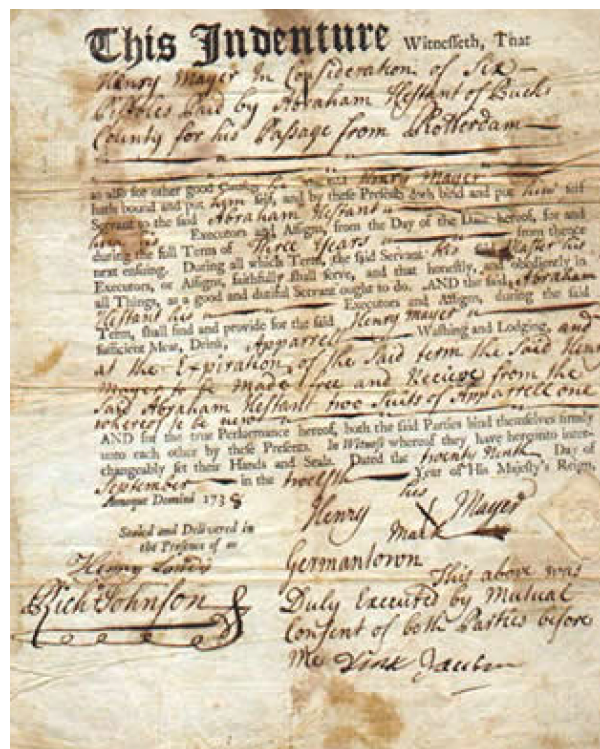 This Indenture Witnesseth, That
Henry Mayer In Consideration of Six
Pistoles Paid by Abraham Hestant of Bucks
County for his Passage from Rotterdam
as also for other good Causes he the said Henry Mayer
hath bound and put him self, and by these Presents doth bind and put him self
Servant to the said Abraham Hestant
his Executors and Assigns, from the Day of the Date hereof, for and
during the full Term of Three Years from thence
next ensuing. During all which Term, the said Servant his said Master his
Executors, or Assigns, faithfully shall serve, and that honestly, and obediently in
all Things, as a good and dutiful Servant ought to do. AND the said Abraham
Hestant his Executors and Assigns, during the said
Term, shall find and provide for the said Henry Mayer
sufficient Meat, Drink, Apparrell Washing and Lodging, and
at the Expiration of the Said term the Said Henry
Mayer to be made free and Recieve from the
Said Abraham Hestant two Suits of Apparrell one
whereof to be new
AND for the true Performance hereof, both the said Parties bind themselves firmly
unto each other by these Presents. In Witness whereof they have hereunto inter-
changeably set their Hands and Seals. Dated the twenty Ninth Day of
September in the twelfth Year of His Majesty's Reign,
Annoque Domini 1738
his
Henry X Mayer
mark
Sealed and Delivered in
the Presence of us
Henry
Rich Johnson
Germantown
This above was
Duly Executed by Mutual
Consent of both Parties before
me